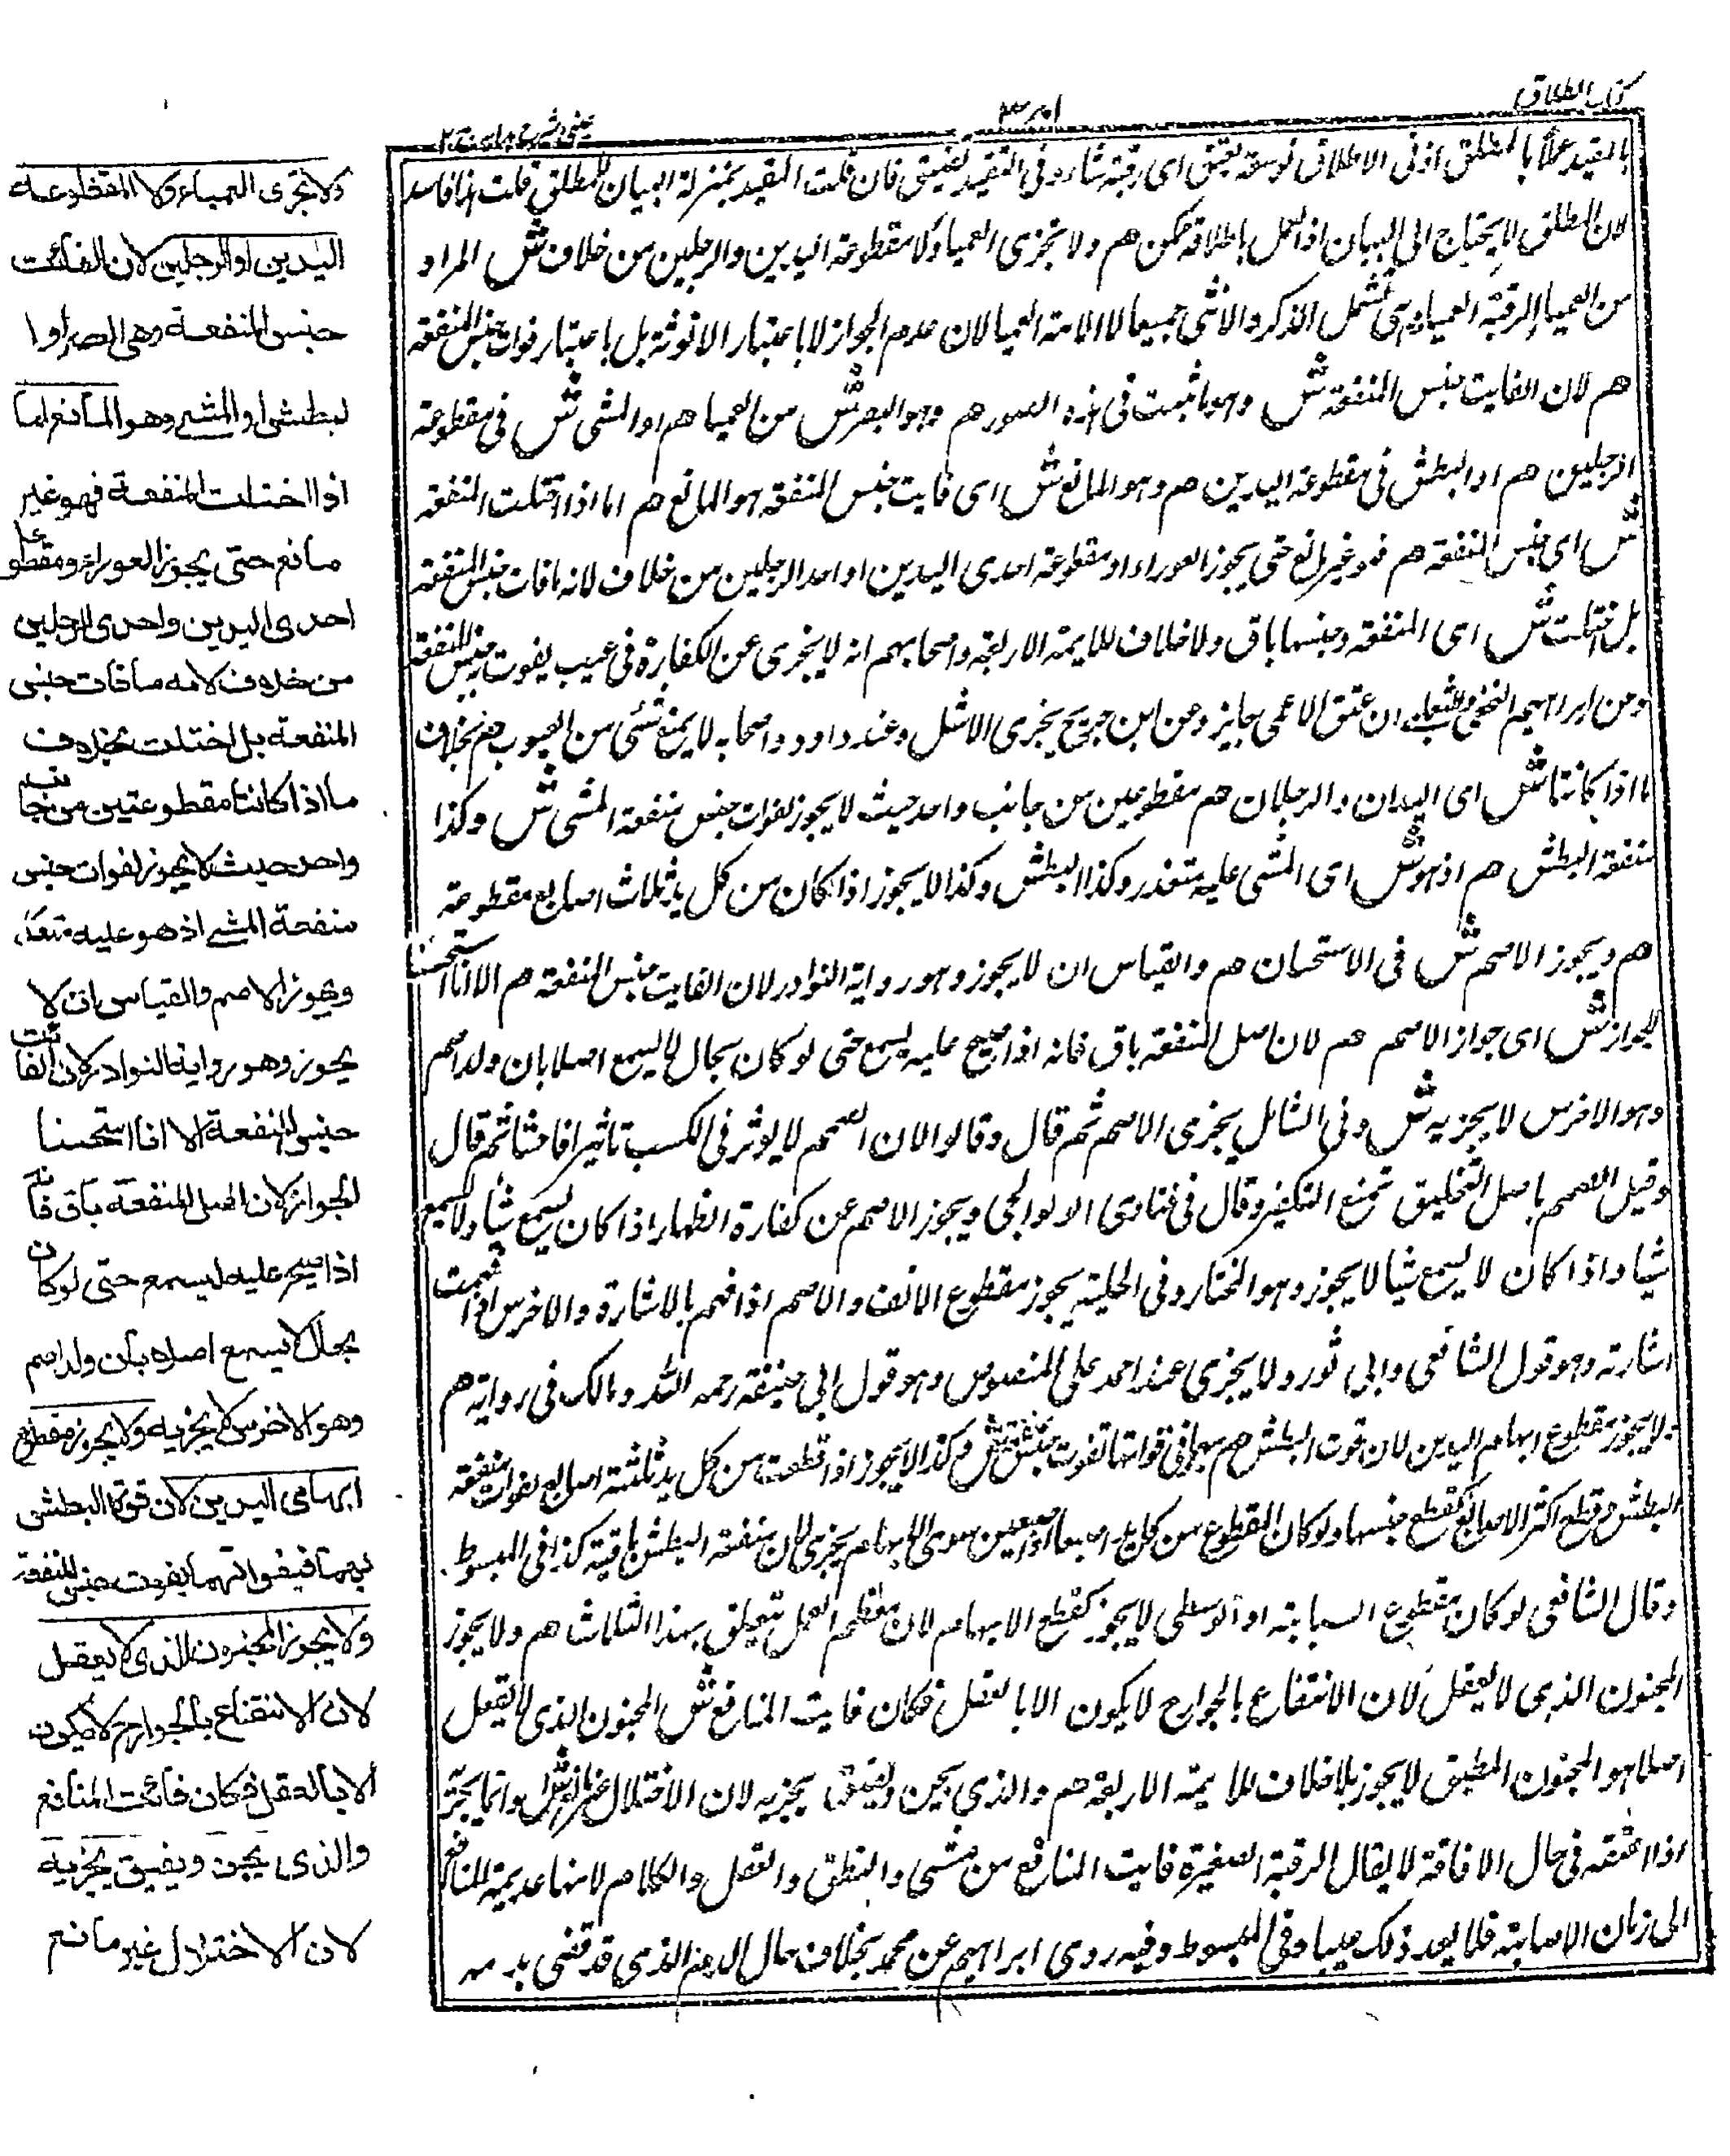 كتاب الطلاق
عينى شرح هدايه ج ٢
بالمقيد عملا بالمطلق اذ فى الاطلاق توسعة بعتق اى رقبة شاء وفى التقييد تضييق فان قلت المقيد بمنزلة البيان للمطلق قلت هذا فاسد
لان المطلق لا يحتاج الى البيان اذ العمل باطلاقه ممكن هم ولا تجزى العميا ولا مقطوعة اليدين والرجلين من خلاف ش المراد
من العميا الرقبة العمياء وهى تشمل الذكر والانثى جميعا لا الامة العميا لان عدم الجواز لا باعتبار الانوثة بل باعتبار فوات جنس المنفعة
هم لان الفايت جنس المنفعة ش وهو ثابت فى هذه الصور هم وهو البصر ش من العميا هم او المشى ش فى مقطوعة
الرجلين هم او البطش فى مقطوعة اليدين هم وهو المانع ش اى فايت جنس المنفعة هو المانع هم اما اذا اختلت المنفعة
ش اى جنس المنفعة هم فهو غير مانع حتى يجوز العوراء او مقطوعة احدى اليدين او احد الرجلين من خلاف لانه ما فات جنس المنفعة
بل اختلت ش اى المنفعة وجنسها باق ولا خلاف للايمة الاربعة واصحابهم انه لا يجزى عن الكفارة فى عيب يفوت به جنس المنفعة
وعن ابراهيم النخعى والشعبى ان عتق الاعمى جايز وعن ابن جريج يجزى الاشل وعند داود واصحابه لا يمنع شئى من العيوب هم بخلاف
ما اذا كانتا ش اى اليدان والرجلان هم مقطوعين من جانب واحد حيث لا يجوز لفوات جنس منفعة المشى ش وكذا
منفعة البطش هم اذ هو ش اى المشى عليه متعذر وكذا البطش وكذا لا يجوز اذا كان من كل يد ثلاث اصابع مقطوعة
هم ويجوز الاصم ش فى الاستحسان هم والقياس ان لا يجوز وهو رواية النوادر لان الفايت جنس المنفعة هم الا انا استحسنا
الجواز ش اى جواز الاصم هم لان اصل المنفعة باق فانه اذا صيح عليه يسمع حتى لو كان بحال لا يسمع اصلا بان ولد اصم
وهو الاخرس لا يجزيه ش وفى الشامل يجزى الاصم ثم قال وقالوا لان الصمم لا يوثر فى الكسب تاثيرا فاحشا ثم قال
وقيل الصمم باصل التخليق تمنع التكفير وقال فى فتاوى الولوالجى ويجوز الاصم عن كفارة الظهار اذا كان يسمع شيا ولا يسمع
شيا واذا كان لا يسمع شيا لا يجوز وهو المختار وفى الحلية يجوز مقطوع الانف والاصم اذا فهم بالاشارة والاخرس اذا فهمت
اشارته وهو قول الشافعى وابى ثور ولا يجزى عند احمد على المنصوص وهو قول ابى حنيفة رحمه الله ومالك فى رواية هم
ولا يجوز مقطوع ابهام اليدين لان قوت البطش هم بهما فى فواتها تفوت جنس المنفعة ش وكذا لا يجوز اذا قطعت من كل يد ثلثة اصابع لفوات منفعة
البطش وقطع اكثر الاصابع كقطع جنسها ولو كان المقطوع من كل يد اصبعا او اصبعين سوى الابهام يجزى لان منفعة البطش باقية كذا فى المبسوط
وقال الشافعى لو كان مقطوع السبابة او الوسطى لا يجوز كقطع الابهام لان معظم العمل يتعلق بهذا الثلاث هم ولا يجوز
المجنون الذى لا يعقل لان الانتفاع بالجوارح لا يكون الا بالعقل فكان فايت المنافع ش المجنون الذى لا يعقل
اصلا هو المجنون المطبق لا يجوز بلا خلاف للايمة الاربعة هم والذى يجن ويفيق يجزيه لان الاختلال غير مانع ش وانما يجزى
اذا اعتقه فى حال الافاقة لا يقال الرقبة الصغيرة فايت المنافع من مشى والنطق والعقل والكلام لانها عديمة المنافع
الى زمان الاصابة فلا يعد ذلك عيبا وفى المبسوط وفيه روى ابراهيم عن محمد بخلاف حلال الدم الذى قد قضى بدمه
ولا تجزى العمياء ولا المقطوعة
اليدين او الرجلين لان الفائت
جنس المنفعة وهى البصر او ا
لبطش او المشے وهو المانع اما
اذا اختلت المنفعة فهو غير
مانع حتى يجوز العوراء ومقطوعة
احدى اليدين واحدى الرجلين
من خلاف لانه ما فات جنس
المنفعة بل اختلت بخلاف
ما اذا كانتا مقطوعتين من جانب
واحد حيث لا يجوز لفوات جنس
منفعة المشے اذ هو عليه متعذر
ويجوز الاصم والقياس ان لا
يجوز وهو رواية النوادر لان الفائت
جنس المنفعة الا انا استحسنا
الجواز لان اصل المنفعة باق فانه
اذا صيح عليه ليسمع حتى لو كان
بحال لا يسمع اصلا بان ولد اصم
وهو الاخرس لا يجزيه ولا يجوز مقطوع
ابهامى اليدين لان قوة البطش
بهما فبفواتهما يفوت جنس المنفعة
ولا يجوز المجنون الذى لا يعقل
لان الانتفاع بالجوارح لا يكون
الا بالعقل فكان فائت المنافع
والذى يجن ويفيق يجزيه
لان الاختلال غير مانع